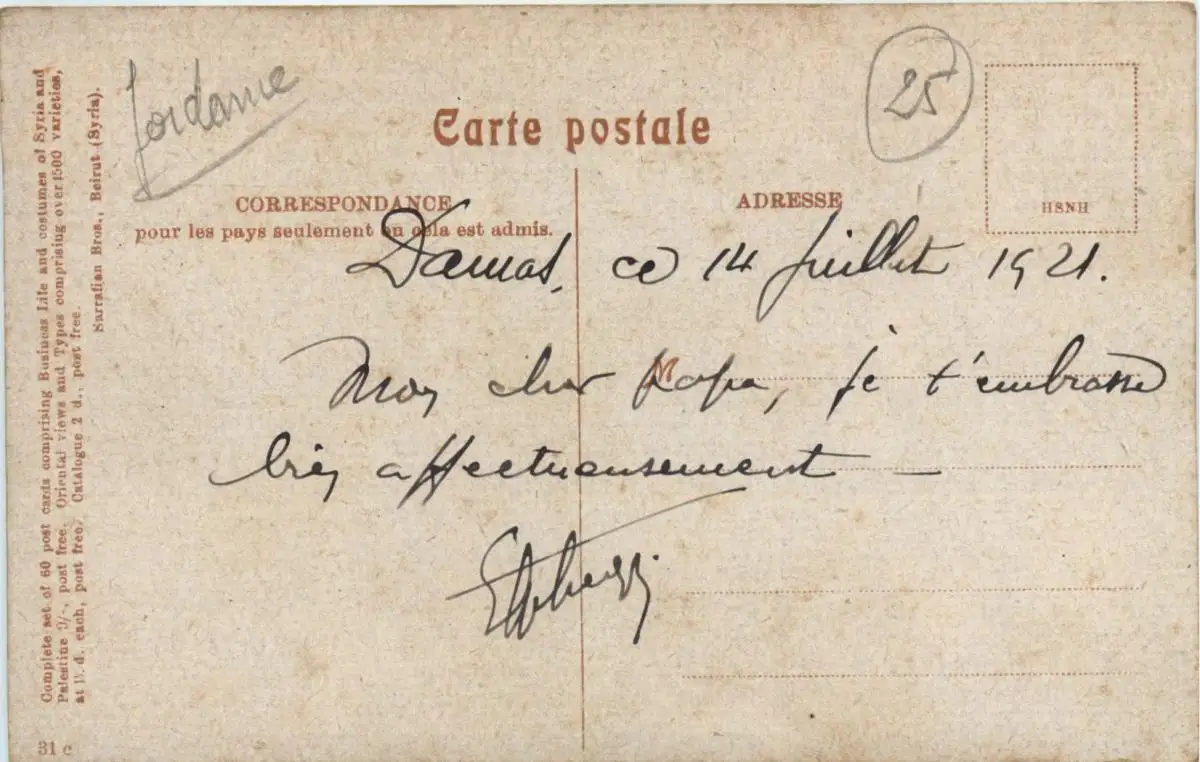 Jordanie
25
Carte postale
CORRESPONDANCE
pour les pays seulement où cela est admis.
ADRESSE
HSNH
Damas, ce 14 Juillet 1921.
Mon cher Papa, je t'embrasse
bien affectueusement —
Complete set of 60 post cards comprising Business Life and costumes of Syria and
Palestine /-, post free. Oriental views and Types comprising over 1500 varieties,
at d. each, post free. Catalogue 2 d., post free.
Sarrafian Bros., Beirut (Syria).
31 c